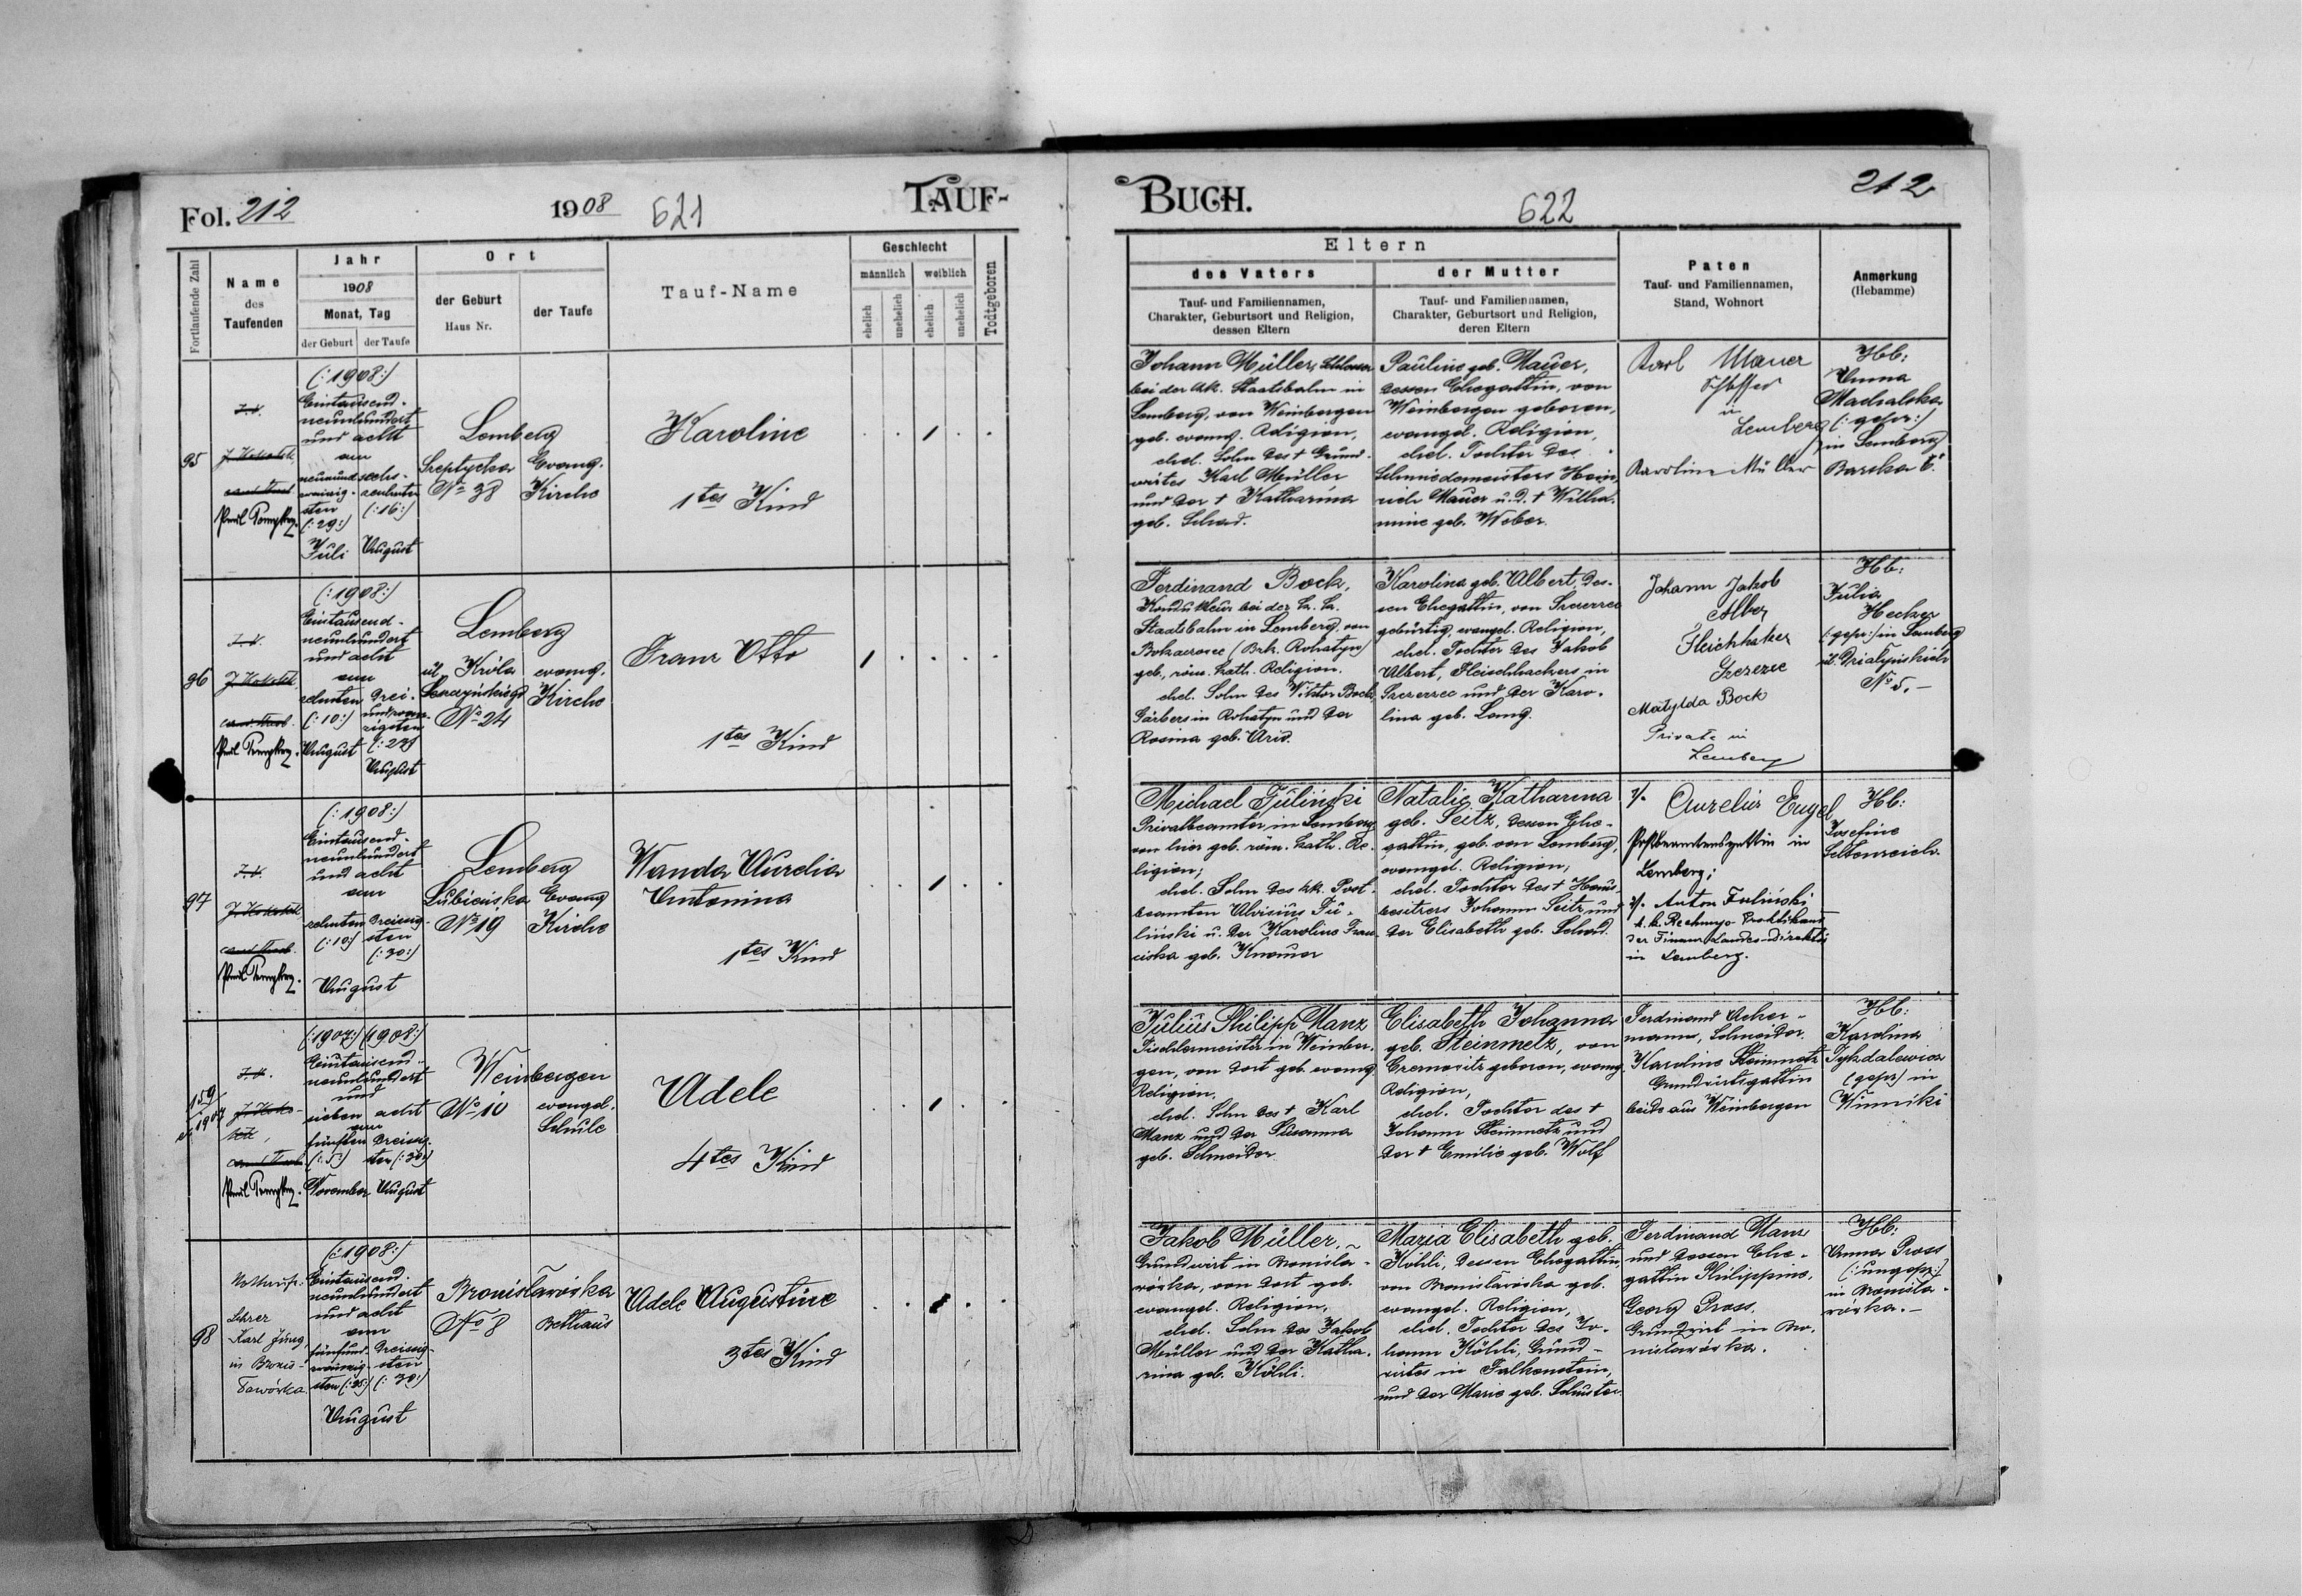 Fol. 212
1908
621
TAUF-
Fortlaufende Zahl
Name
des
Taufenden
Jahr
1908
Monat, Tag
der Geburt
der Taufe
Ort
der Geburt
Haus Nr.
der Taufe
Tauf-Name
Geschlecht
männlich
weiblich
ehelich
unehelich
ehelich
unehelich
Todtgeboren
95
(:1908:)
Eintausend-
neunhundert
und acht
am
neunund-
zwanzig-
sten
(:29:)
Juli
sechs-
zehnten
(:16:)
August
Lemberg
Szeptycka
No 38
Evang.
Kirche
Karoline
1tes Kind
96
(:1908:)
Eintausend-
neunhundert
und acht
am
zehnten
(:10:)
August
drei-
und zwan-
zigsten
August
Lemberg
ul. Króla
Leszczyńskiego
No 24
evang.
Kirche
Franz Otto
1tes Kind
97
(:1908:)
Eintausend-
neunhundert
und acht
am
zehnten
(:10:)
dreissig-
sten
(:30:)
August
Lemberg
Lubieńska
No 19
Evang
Kirche
Wanda Aurelia
Antonina
1tes Kind
159
1907
(:1907:) (1908:)
Eintausend-
neunhundert
und
sieben acht
am
fünften
(:5:)
November
dreissig-
sten (:30:)
August
Weinbergen
No 10
evangel.
Schule
Adele
4tes Kind
98
Nottaufe.
Lehrer
Karl Jung
in Bronis-
ławówka
(:1908:)
Eintausend-
neunhundert
und acht
am
fünfund-
zwanzig-
sten (:25:)
dreissig-
sten
(:30:)
August
Bronisławówka
No 8
Bethaus
Adele Augustine
3tes Kind
BUCH.
622
212
Eltern
des Vaters
Tauf- und Familiennamen,
Charakter, Geburtsort und Religion,
dessen Eltern
der Mutter
Tauf- und Familiennamen,
Charakter, Geburtsort und Religion,
deren Eltern
Paten
Tauf- und Familiennamen,
Stand, Wohnort
Anmerkung
(Hebamme)
Johann Müller, Schlosser
bei der kk. Staatsbahn in
Lemberg, von Weinbergen
geb. evang. Religion,
ehel. Sohn des † Grund-
wirtes Karl Müller
und der † Katharina
geb. Schad.
Pauline geb. Mauer,
dessen Ehegattin, von
Weinbergen geboren,
evangel. Religion,
ehel. Tochter des
Schmiedemeisters Hein-
rich Mauer u. d. † Wilhel-
mine geb. Weber.
Karl Mauer
Schlosser
in
Lemberg
Karoline Müller
Hb:
Anna
Machalska
(:gepr:)
in Lemberg
Barska 6.
Ferdinand Bock,
Kondukteur bei der k. k.
Staatsbahn in Lemberg, von
(Bzk. Rohatyn)
geb., röm. kath. Religion.
ehel. Sohn des Viktor Bock,
Gärbers in Rohatyn und der
Rosina geb. Arid.
Karolina geb. Albert, des-
sen Ehegattin, von Szczerzec
gebürtig, evangel. Religion,
ehel. Tochter des Jakob
Albert, Fleischhackers in
Szczerzec und der Karo-
lina geb. Lang.
Johann Jakob
Fleichhaker
Matylda Bock
Private in
Lemberg
Hb:
Julia
Hecker
(:gepr:) in Lemberg
ul. Działyńskich
No 5.-
Michael Juliński
Privatbeamter in Lemberg,
von hier geb. röm. kath. Re-
ligion;
ehel. Sohn des kk. Post-
beamten Aloisius Ju-
liński u. der Karoline Fran-
ciska geb. Kramer
Natalie Katharina
geb. Seitz, dessen Ehe-
gattin, geb. von Lemberg,
evangel. Religion,
ehel. Tochter des † Haus-
besitzers Johann Seitz und
der Elisabeth geb. Schad.
1/. Aurelia Engel
Postbeamtensgattin in
Lemberg;
2/. Anton Juliński
k. k. Rechnungs-Praktikant
der Finanz-Landes-Direktion
in Lemberg.
Hb:
Josefine
Seltenreich
Julius Philipp Manz
Tischlermeister in Weinber-
gen, von dort geb. evang.
Religion,
ehel. Sohn des † Karl
Manz und der Susanna
geb. Schneider
Elisabeth Johanna
geb. Steinmetz, von
Czernowitz geboren, evang.
Religion,
ehel. Tochter des †
Johann Steinmetz und
der † Emilie geb. Wolf
Ferdinand Acker-
mann, Schneider.
Karoline Steinmetz
Grundwirtsgattin
beide aus Weinbergen
Hb:
Karolina
(gepr) in
Winniki
Jakob Müller,
Grundwirt in Bronisla-
wówka, von dort geb.
evangel. Religion,
ehel. Sohn des Jakob
Müller und der Katha-
rina geb. Köhli.
Maria Elisabeth geb.
Köhli, dessen Ehegattin,
von Bronisławówka geb.
evangel. Religion,
ehel. Tochter des Jo-
hann Köhli, Grund-
wirtes in Falkenstein,
und der Marie geb. Schuster.
Ferdinand Manz
und dessen Ehe-
gattin Philippine.
Georg Pross,
Grundwirt in Bro-
nislawówka.
Hb:
Anna Pross
(:ungepr:)
in Bronisla-
wówka.-